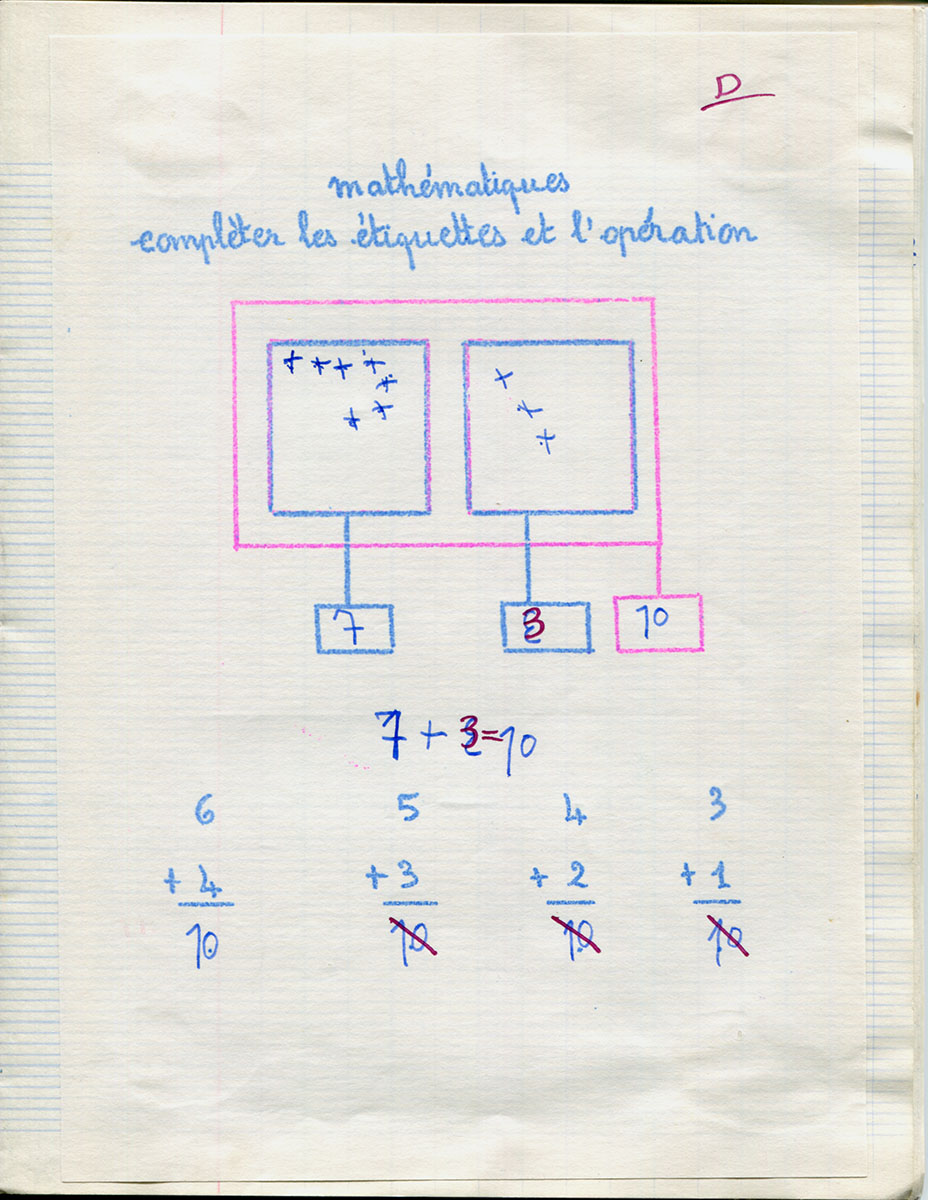 D
mathématiques
complèter les étiquettes et l'opération
7 3 10
7 + 3 = 10
6 5 4 3
+ 4 + 3 + 2 + 1
10 10 10 10